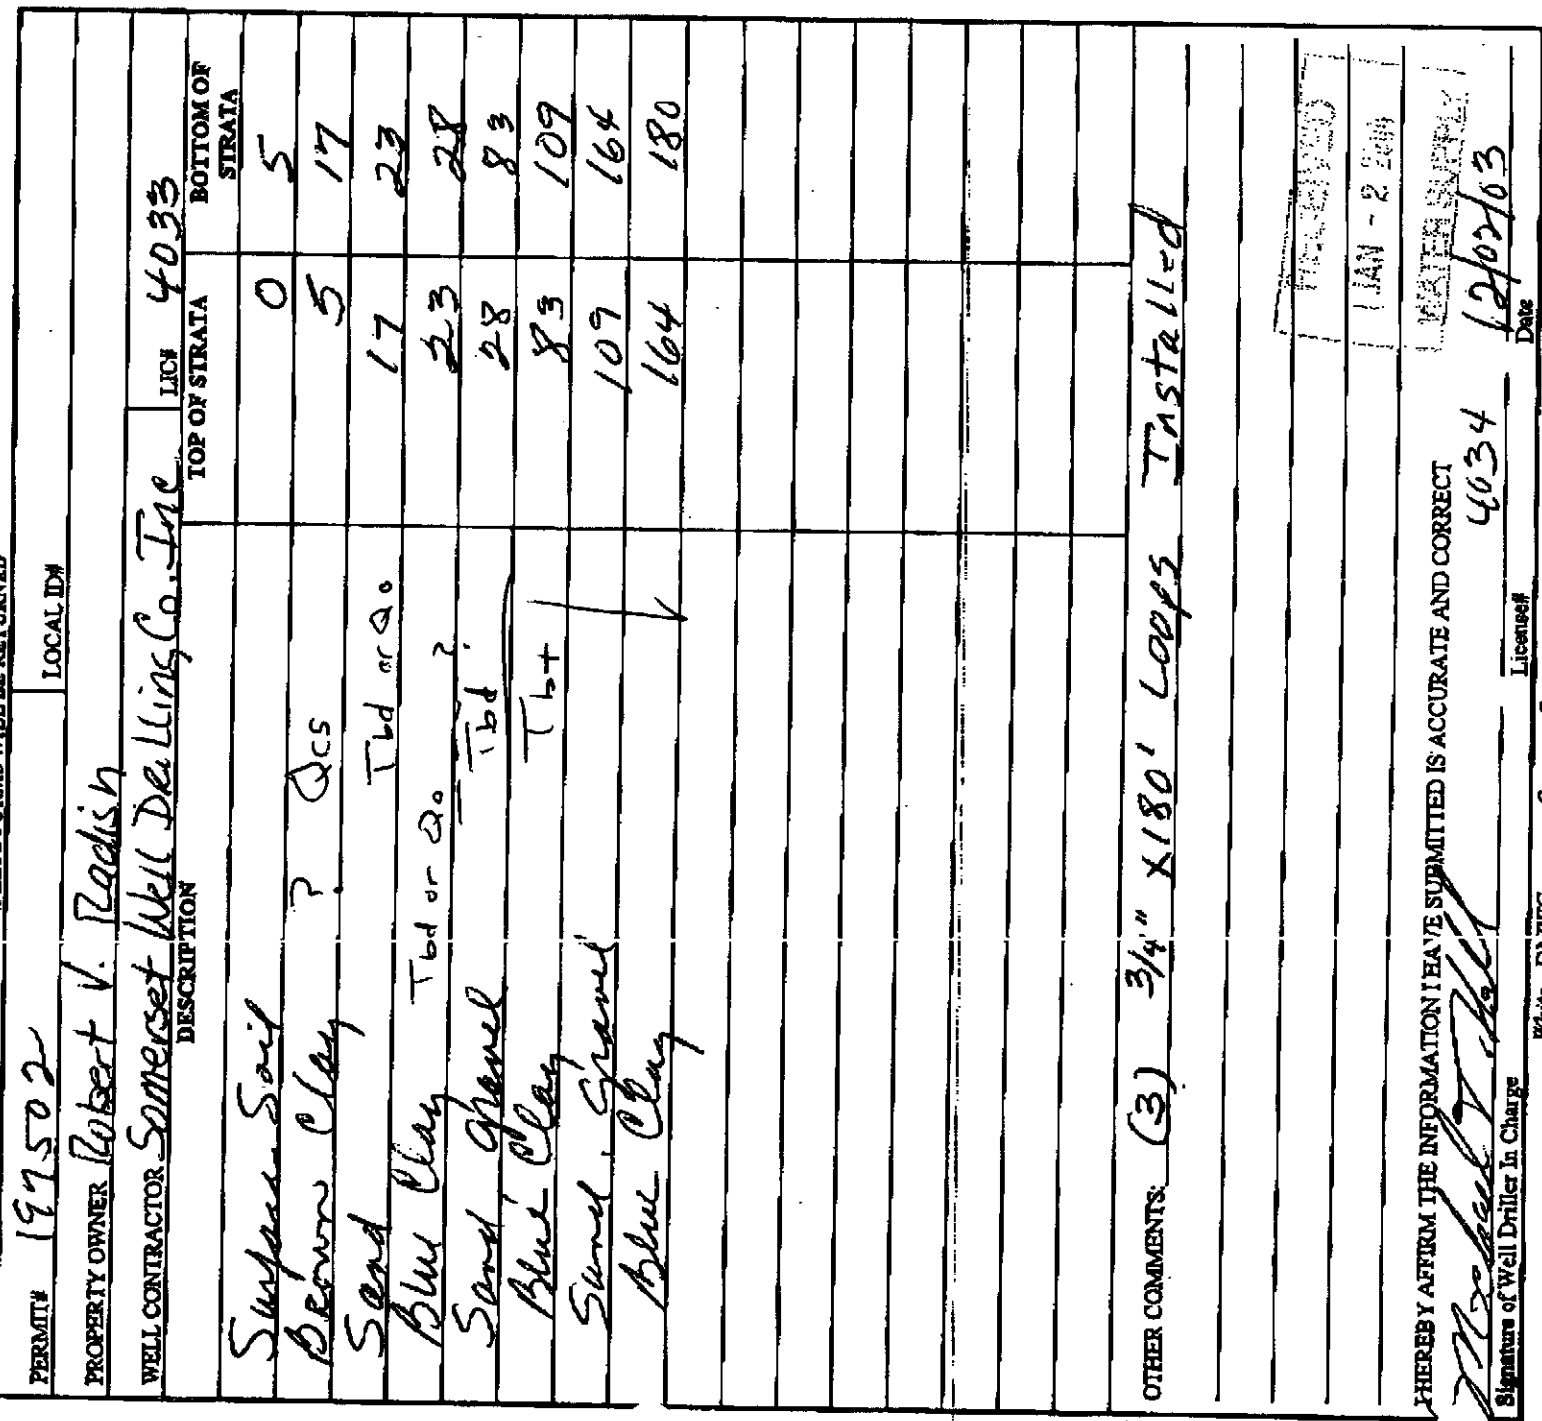 PERMIT# 197502 LOCAL ID#
PROPERTY OWNER Robert V. Radish
WELL CONTRACTOR Somerset Well Drilling Co. Inc LIC# 4033
DESCRIPTION TOP OF STRATA BOTTOM OF STRATA
Surface Soil 0 5
Brown Clay ? Qcs 5 17
Sand Tbd or Qo 17 23
Blue Clay Tbd or Qo 23 28
Sand Gravel Tbd ? 28 83
Blue Clay Tbt 83 109
Sand, Gravel 109 164
Blue Clay 164 180
OTHER COMMENTS: (3) 3/4" X180' Loops Installed
RECEIVED
JAN - 2
WATER SUPPLY
I HEREBY AFFIRM THE INFORMATION I HAVE SUBMITTED IS ACCURATE AND CORRECT
4034 12/02/03
Signature of Well Driller In Charge License# Date